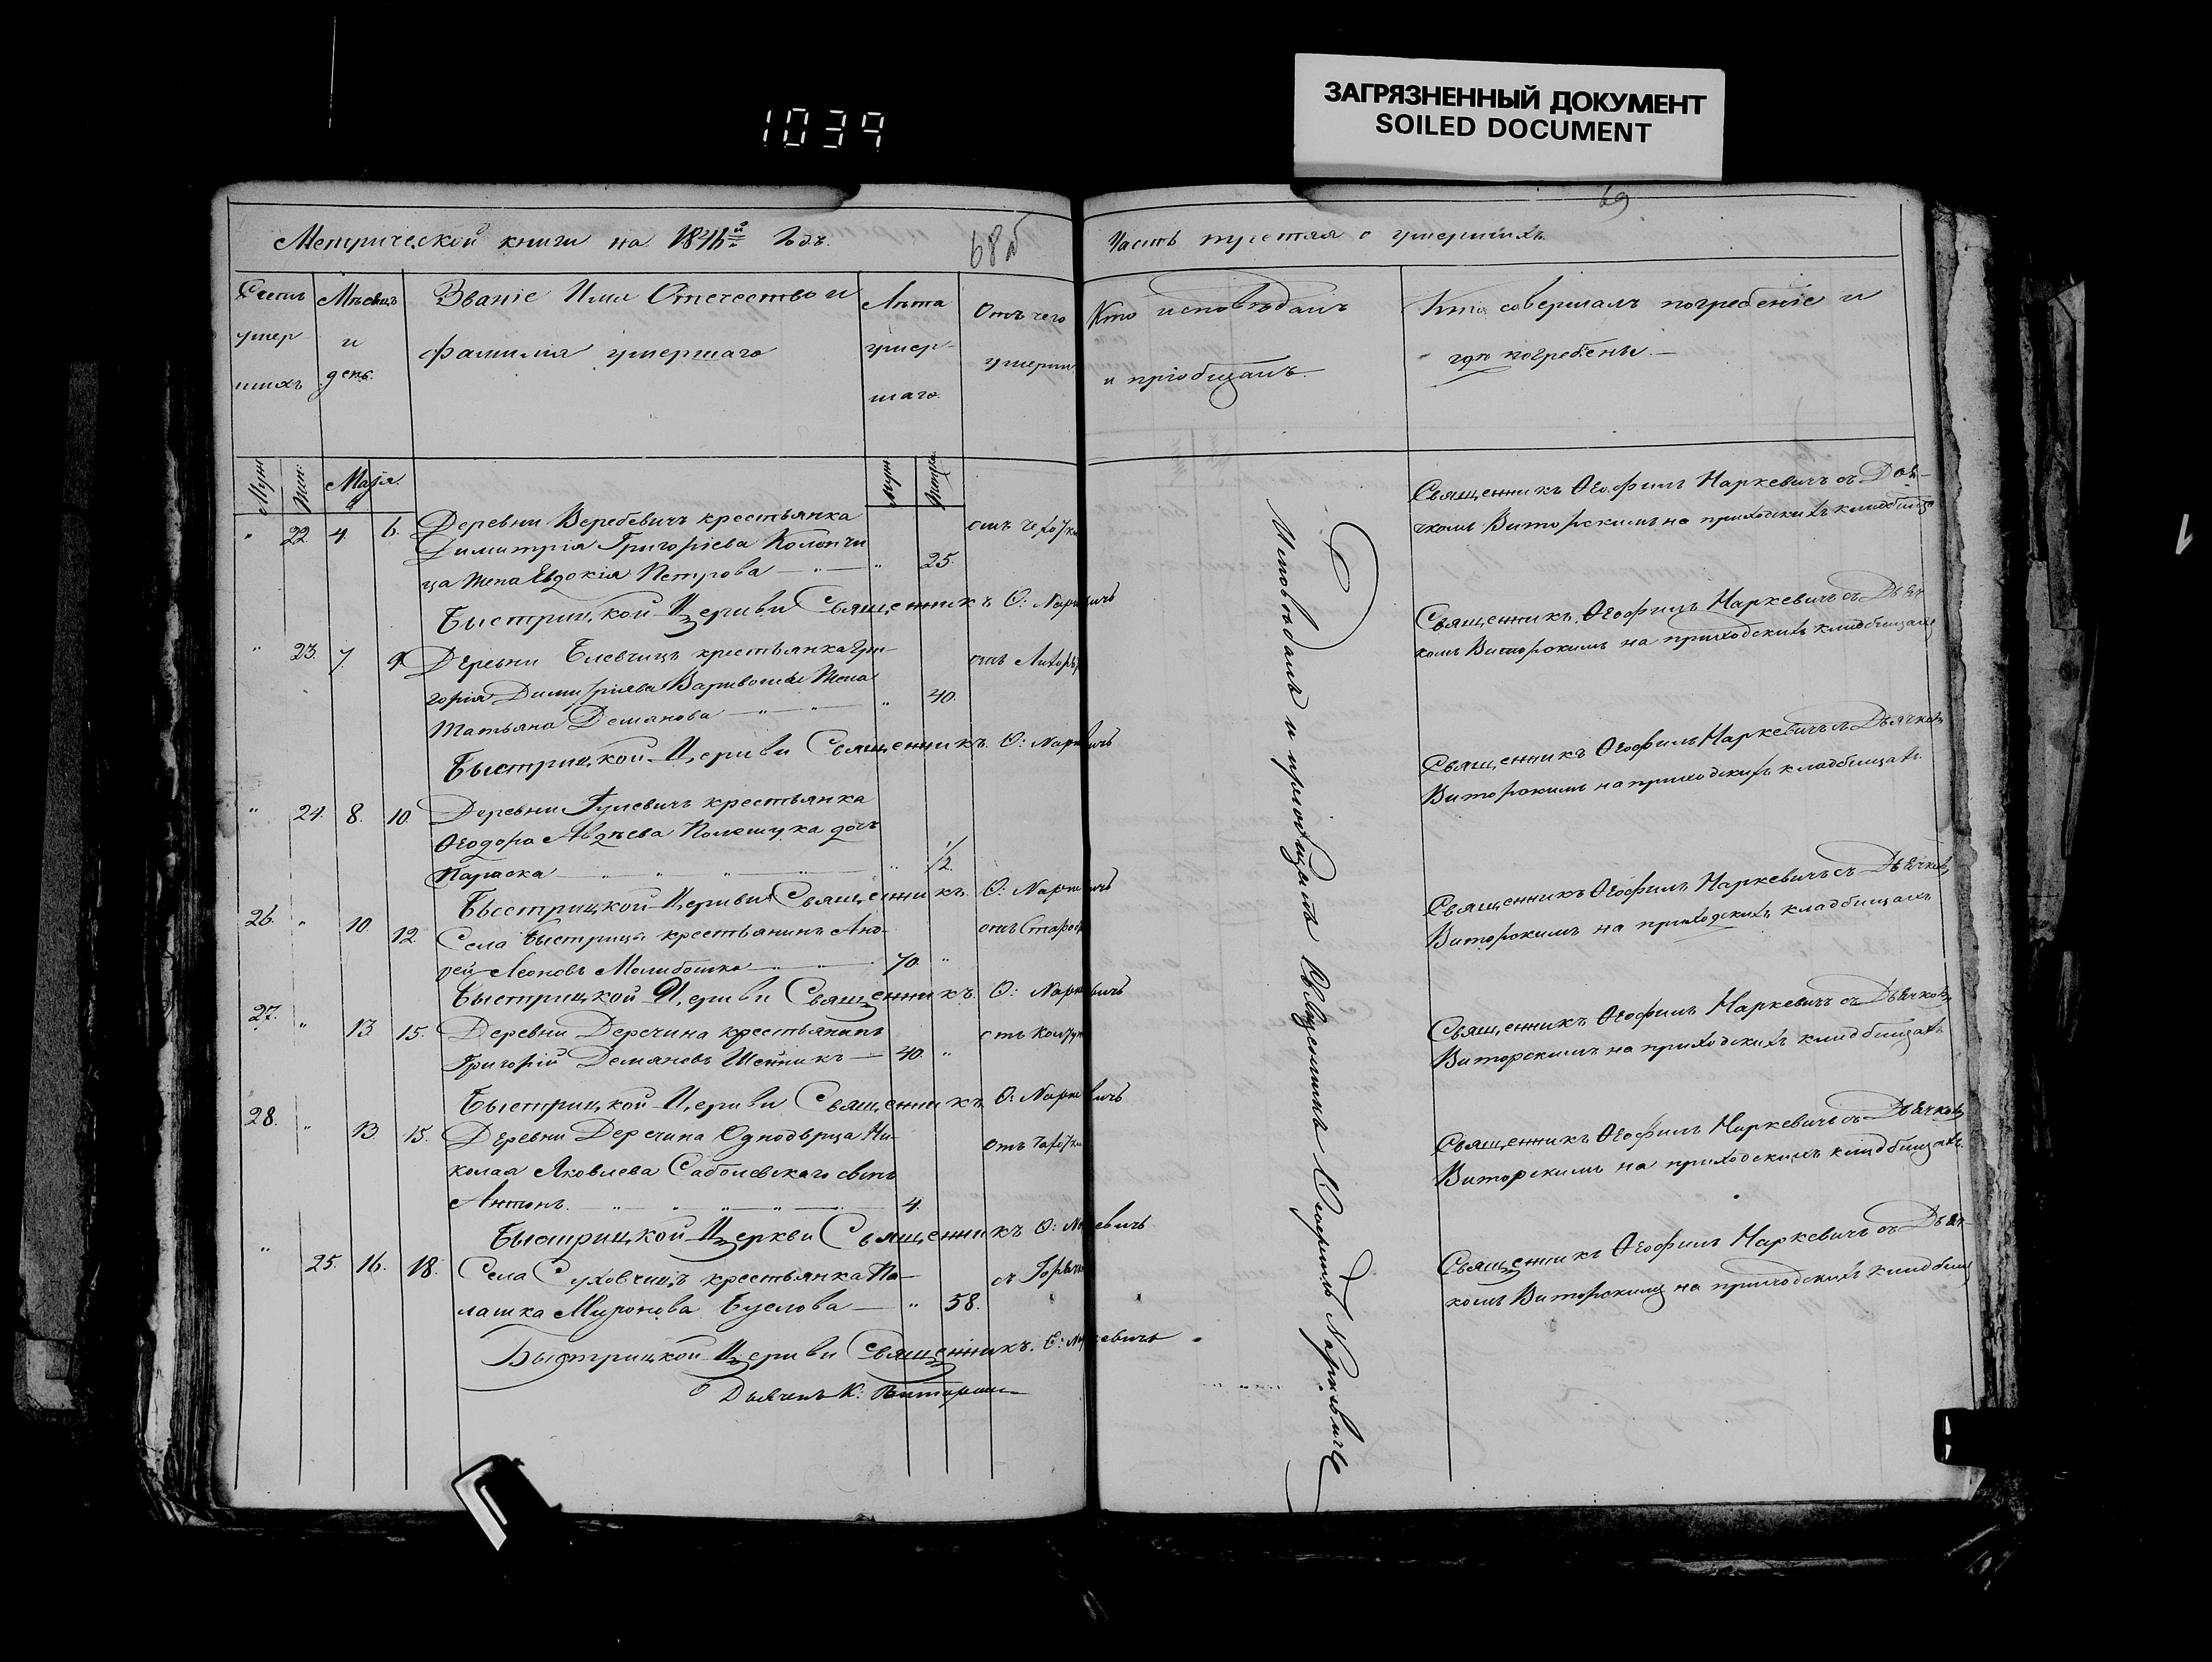 1039
ЗАГРЯЗНЕННЫЙ ДОКУМЕНТ
SOILED DOCUMENT
69
1
Метрической книги на 1846й Годъ.
68об
Часть третяя о умершихъ.
Счетъ умер шихъ
Мѣсяцъ и день.
Званіе Имя Отечество и
фамилія умершаго
Лѣта умер шаго.
Отъ чего умерли
Кто исповѣдалъ
и пріобщалъ.
Кто совершалъ погребеніе и
гдѣ погребены.
Муж Жен:
Маія.
" 22. 4. 6. Деревни Веребевичъ крестьянка
Димитрія Григоріева
ца жена Евдокія Петрова " 25.
отъ чехотки
Священникъ Ѳеофилъ Наркевичъ съ Дья-
чкомъ Виторскимъ на приходскихъ кладбище
Быстрицкой Церкви Священникъ Ѳ: Наркевичъ
" 23. 7. 9. Деревни Блевчицъ крестьянка Гри-
горія Димитріева жена
Татьяна Демянова " 40.
отъ
Священникъ Ѳеофилъ Наркевичъ съ Дьяч
комъ Виторскимъ на приходскихъ кладбищахъ
Быстрицкой Церкви Священникъ. Ѳ: Наркевичъ
" 24. 8. 10. Деревни Гулевичъ крестьянка
Ѳеодора Авдѣева Полещука дочь
Параска " 1/2.
Священникъ Ѳеофилъ Наркевичъ съ Дьячком
Виторскимъ на приходскихъ кладбищахъ.
Быстрицкой Церкви Священникъ. Ѳ: Наркевичъ
26. " 10. 12. Села Быстрицы крестьянинъ Анд-
рей Леоновъ Молибошка 70. "
отъ Старост
Священникъ Ѳеофилъ Наркевичъ съ Дьячком
Виторскимъ на приходскихъ кладбищахъ
Быстрицкой Церкви Священникъ. Ѳ: Наркевичъ
27. " 13. 15. Деревни Деречина крестьянинъ
Григорій Демяновъ Шейникъ 40. "
отъ
Священникъ Ѳеофилъ Наркевичъ съ Дьячком
Виторскимъ на приходскихъ кладбищахъ
Быстрицкой Церкви Священникъ Ѳ: Наркевичъ
28. " 13. 15. Деревни Деречина Однодврца Ни-
колая Яковлева Саболевскаго сынъ
Антонъ. 4.
Отъ
Священникъ Ѳеофилъ Наркевичъ съ Дьячком
Виторскимъ на приходскихъ кладбищахъ.
Быстрицкой Церкви Священникъ Ѳ: Наркевичъ
" 25. 16. 18. Села Суховчицъ крестьянка Па-
лашка Миронова Буслова " 58.
съ Горяч
Священникъ Ѳеофилъ Наркевичъ съ Дьяч
комъ Виторскимъ на приходскихъ кладбищ
Быстрицкой Церкви Священникъ. Ѳ: Наркевичъ
Дьячекъ К: Виторскій
Исповѣдалъ и пріобщалъ Священникъ Ѳеофилъ Наркевичъ